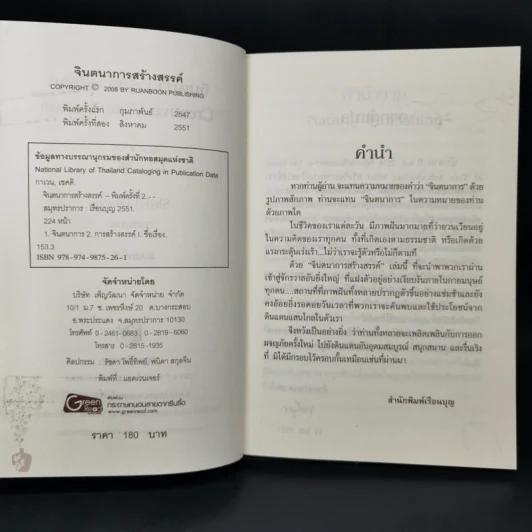 จินตนาการสร้างสรรค์
COPYRIGHT © 2008 BY RUANBOON PUBLISHING
พิมพ์ครั้งแรก กุมภาพันธ์ 2547
พิมพ์ครั้งที่สอง สิงหาคม 2551
ข้อมูลทางบรรณานุกรมของสำนักหอสมุดแห่งชาติ
National Library of Thailand Cataloging in Publication Data
กาเวน, เชคติ.
จินตนาการสร้างสรรค์ -- พิมพ์ครั้งที่ 2. --
สมุทรปราการ : เรือนบุญ 2551.
224 หน้า
1. จินตนาการ 2. การสร้างสรรค์ I. ชื่อเรื่อง.
153.3
ISBN 978-974-9875-26-1
จัดจำหน่ายโดย
บริษัท เพ็ญวัฒนา จัดจำหน่าย จำกัด
10/1 ม.7 ซ.เพชรหึงษ์ 20 ต.บางกระสอบ
อ.พระประแดง จ.สมุทรปราการ 10130
โทรศัพท์ 0-2461-0683, 0-2819-6060
โทรสาร 0-2815-1935
ศิลปกรรม : รัชดา โพธิ์ทิพย์, พนิดา สกุลจีน
พิมพ์ที่ : แอดเวนเจอร์
Green
Read
กระดาษถนอมสายตากรีนรี้ด
www.greenread.com
ราคา 180 บาท
คำนำ
หากท่านผู้อ่าน จะแทนความหมายของคำว่า "จินตนาการ" ด้วย
รูปภาพสักภาพ ท่านจะแทน "จินตนาการ" ในความหมายของท่าน
ด้วยภาพใด
ในชีวิตของเราแต่ละวัน มีภาพฝันมากมายที่ว่ายวนเวียนอยู่
ในความคิดของเราทุกคน ทั้งที่เกิดเองตามธรรมชาติ หรือเกิดด้วย
แรงกระตุ้นเร่งเร้า...ไม่ว่าเราจะรู้ตัวหรือไม่ก็ตามที
ด้วย "จินตนาการสร้างสรรค์" เล่มนี้ ที่จะนำพาพวกเราผ่าน
เข้าสู่จักรวาลอันยิ่งใหญ่ ที่แฝงตัวอยู่อย่างเงียบงันภายในกายมนุษย์
ทุกคน...สถานที่ที่ภาพฝันทั้งหลายปรากฏตัวขึ้นอย่างแช่มช้าและยัง
คงอ้อยอิ่งรอคอยวันเวลาที่พวกเราจะค้นพบและใช้ประโยชน์จาก
ดินแดนแสนไกลในตัวเรา
จึงหวังเป็นอย่างยิ่ง ว่าท่านทั้งหลายจะเพลิดเพลินกับการออก
ผจญภัยครั้งใหม่ ไปยังดินแดนอันอุดมสมบูรณ์ สนุกสนาน และรื่นเริง
ที่ มิได้มีกรอบไว้ครอบกั้นเหมือนเช่นที่ผ่านมา
สำนักพิมพ์เรือนบุญ